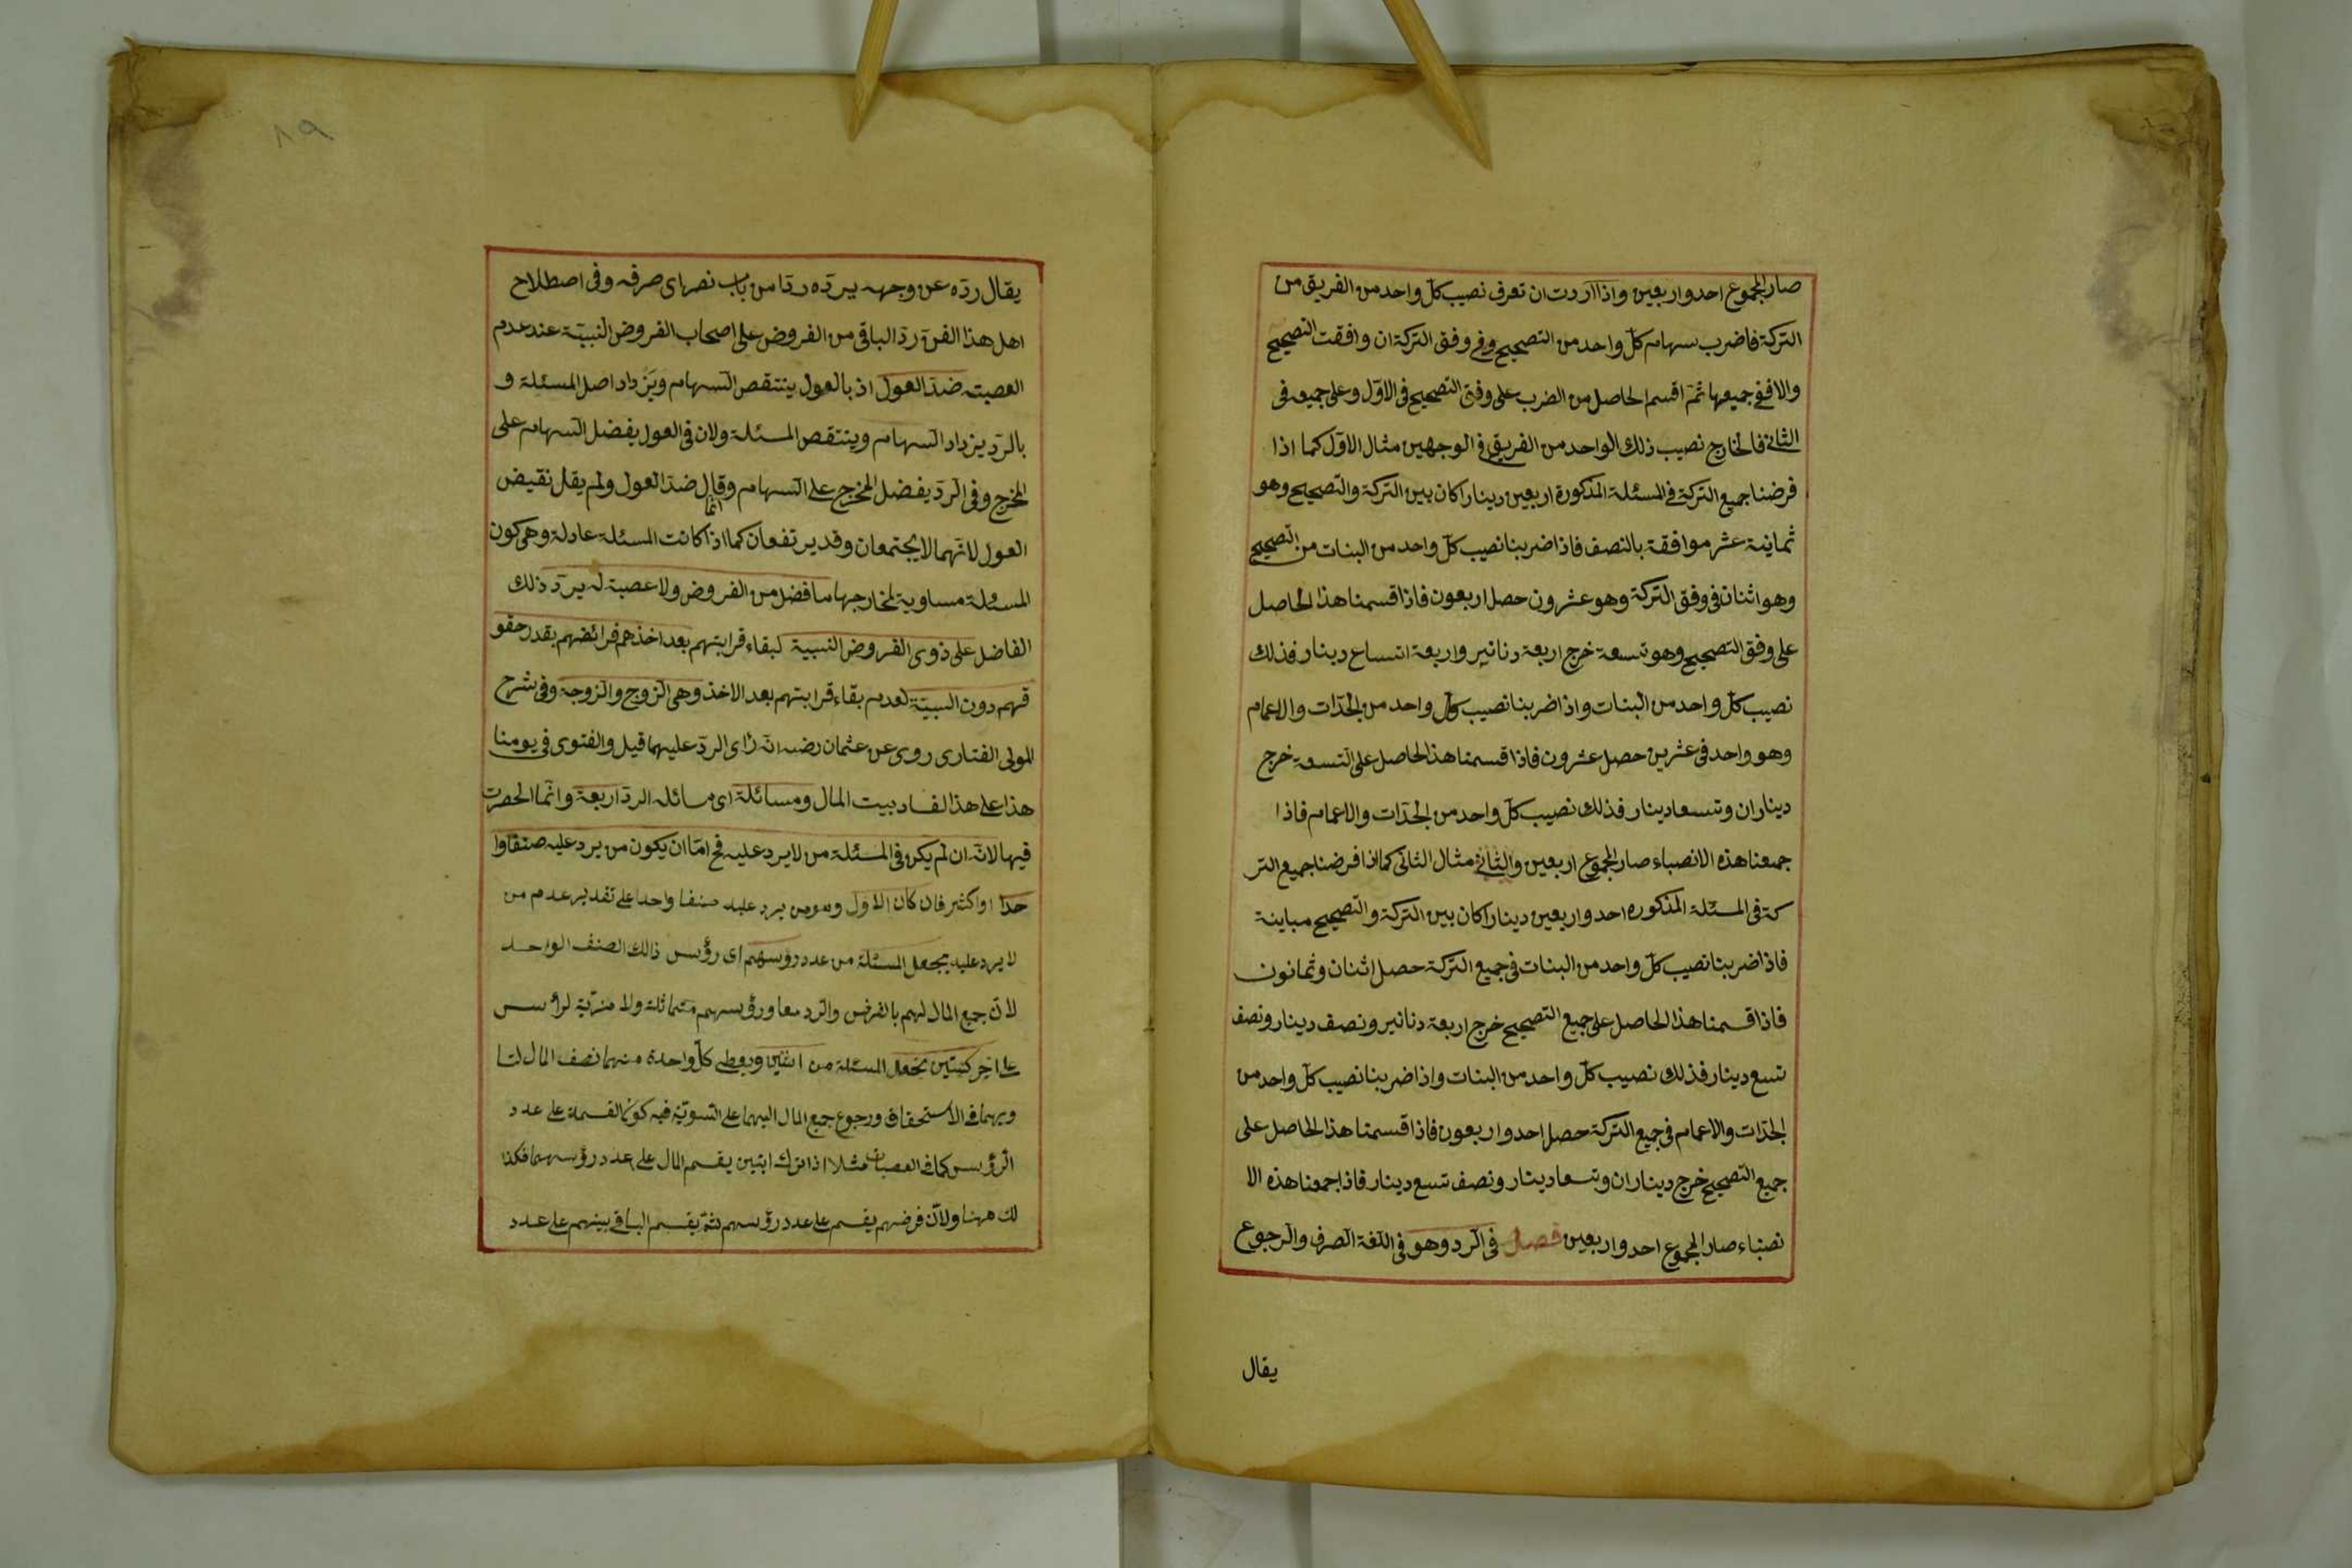 صار المجموع احد واربعين واذا اردت ان تعرف نصيب كلّ واحد من الفريق من
التركة فاضرب سهام كلّ واحد من التصحيح فى وفق التركة ان وافقت التصحيح
والا ففى جميعها ثمّ اقسم الحاصل من الضرب على وفق التصحيح فى الاوّل وعلى جميعه فى
الثانى فالخارج نصيب ذلك الواحد من الفريق فى الوجهين مثال الاوّل كما اذا
فرضنا جميع التركة فى المسئلة المذكورة اربعين دينارا كان بين التركة والتصحيح وهو
ثمانية عشر موافقة بالنصف فاذا ضربنا نصيب كلّ واحد من البنات من التصحيح
وهو اثنان فى وفق التركة وهو عشرون حصل اربعون فاذا قسمنا هذا الحاصل
على وفق التصحيح وهو تسعة خرج اربعة دنانير واربعة اتساع دينار فذلك
نصيب كلّ واحد من البنات واذا ضربنا نصيب كلّ واحد من الجدّات والاعمام
وهو واحد فى عشرين حصل عشرون فاذا قسمنا هذا الحاصل على التسعة خرج
ديناران وتسعا دينار فذلك نصيب كلّ واحد من الجدّات والاعمام فاذا
جمعنا هذه الانصباء صار المجموع اربعين والثانى مثال الثانى كما اذا فرضنا جميع التر
كة فى المسئلة المذكوره احد واربعين دينارا كان بين التركة والتصحيح مباينة
فاذا ضربنا نصيب كلّ واحد من البنات فى جميع التركة حصل اثنان وثمانون
فاذا قسمنا هذا الحاصل على جميع التصحيح خرج اربعة دنانير ونصف دينار ونصف
تسع دينار فذلك نصيب كلّ واحد من البنات واذا ضربنا نصيب كلّ واحد من
الجدّات والاعمام فى جميع التركة حصل احد واربعون فاذا قسمنا هذا الحاصل على
جميع التصحيح خرج ديناران وتسعا دينار ونصف تسع دينار فاذا جمعنا هذه الا
نصباء صار المجموع احد واربعين فصل فى الردّ وهو فى اللّغة الصرف والرجوع
يقال
٨٩
يقال ردّه عن وجهه يردّه ردّا من باب نصر اى صرفه وفى اصطلاح
اهل هذا الفنّ ردّ الباقى من الفروض على اصحاب الفروض النسبيّة عند عدم
العصبته ضدّ العول اذ بالعول ينتقص السهام ويزداد اصل المسئلة و
بالردّ يزداد السهام وينتقص المسئلة ولان فى العول يفضل السهام على
المخرج وفى الردّ يفضل المخرج على السهام وانّما قال ضدّ العول ولم يقل نقيض
العول لانّهما لا يجتمعان وقد يرتفعان كما اذا كانت المسئلة عادلة وهى كون
المسئلة مساوية لمخارجها ما فضل من الفروض ولا عصبة له يردّ ذلك
الفاضل على ذوى الفروض النسبية لبقاء قرابتهم بعد اخذهم فرائضهم بقدر حقو
قهم دون السببيّة لعدم بقاء قرابتهم بعد الاخذ وهى الزوج والزوجة وفى شرح
المولى الفنارى روى عن عثمان رضه انّه رأى الردّ عليهما قيل والفتوى فى يومنا
هذا على هذا لفساد بيت المال ومسائلة اى مسائله الردّ اربعة وانّما الحصرت
فيها لانّه ان لم يكن فى المسئلة من لا يرد عليه فح امّا ان يكون من يرد عليه صنفا وا
حدا او اكثر فان كان الاوّل وهو من يرد عليه صنفا واحدا على تقدير عدم من
لا يرد عليه يجعل المسئلة من عدد رؤسهم اى رؤس ذالك الصنف الواحد
لانّ جميع المال لهم بالفرض والرد معا ورؤسهم متماثلة ولا مزيّة لرأس
على اخر كبنتين تجعل المسئلة من اثنين ويعطى كلّ واحدة منهما نصف المال لتسا
ويهما فى الاستحقاق ورجوع جميع المال اليهما على السّويّة فيه كون القسمة على عدد
الرؤس كما فى العصبات مثلا اذا ترك ابنين يقسم المال على عدد رؤسهما فكذا
لك ههنا ولانّ فرضهم يقسم على عدد رؤسهم ثمّ يقسم الباقى بينهم على عدد